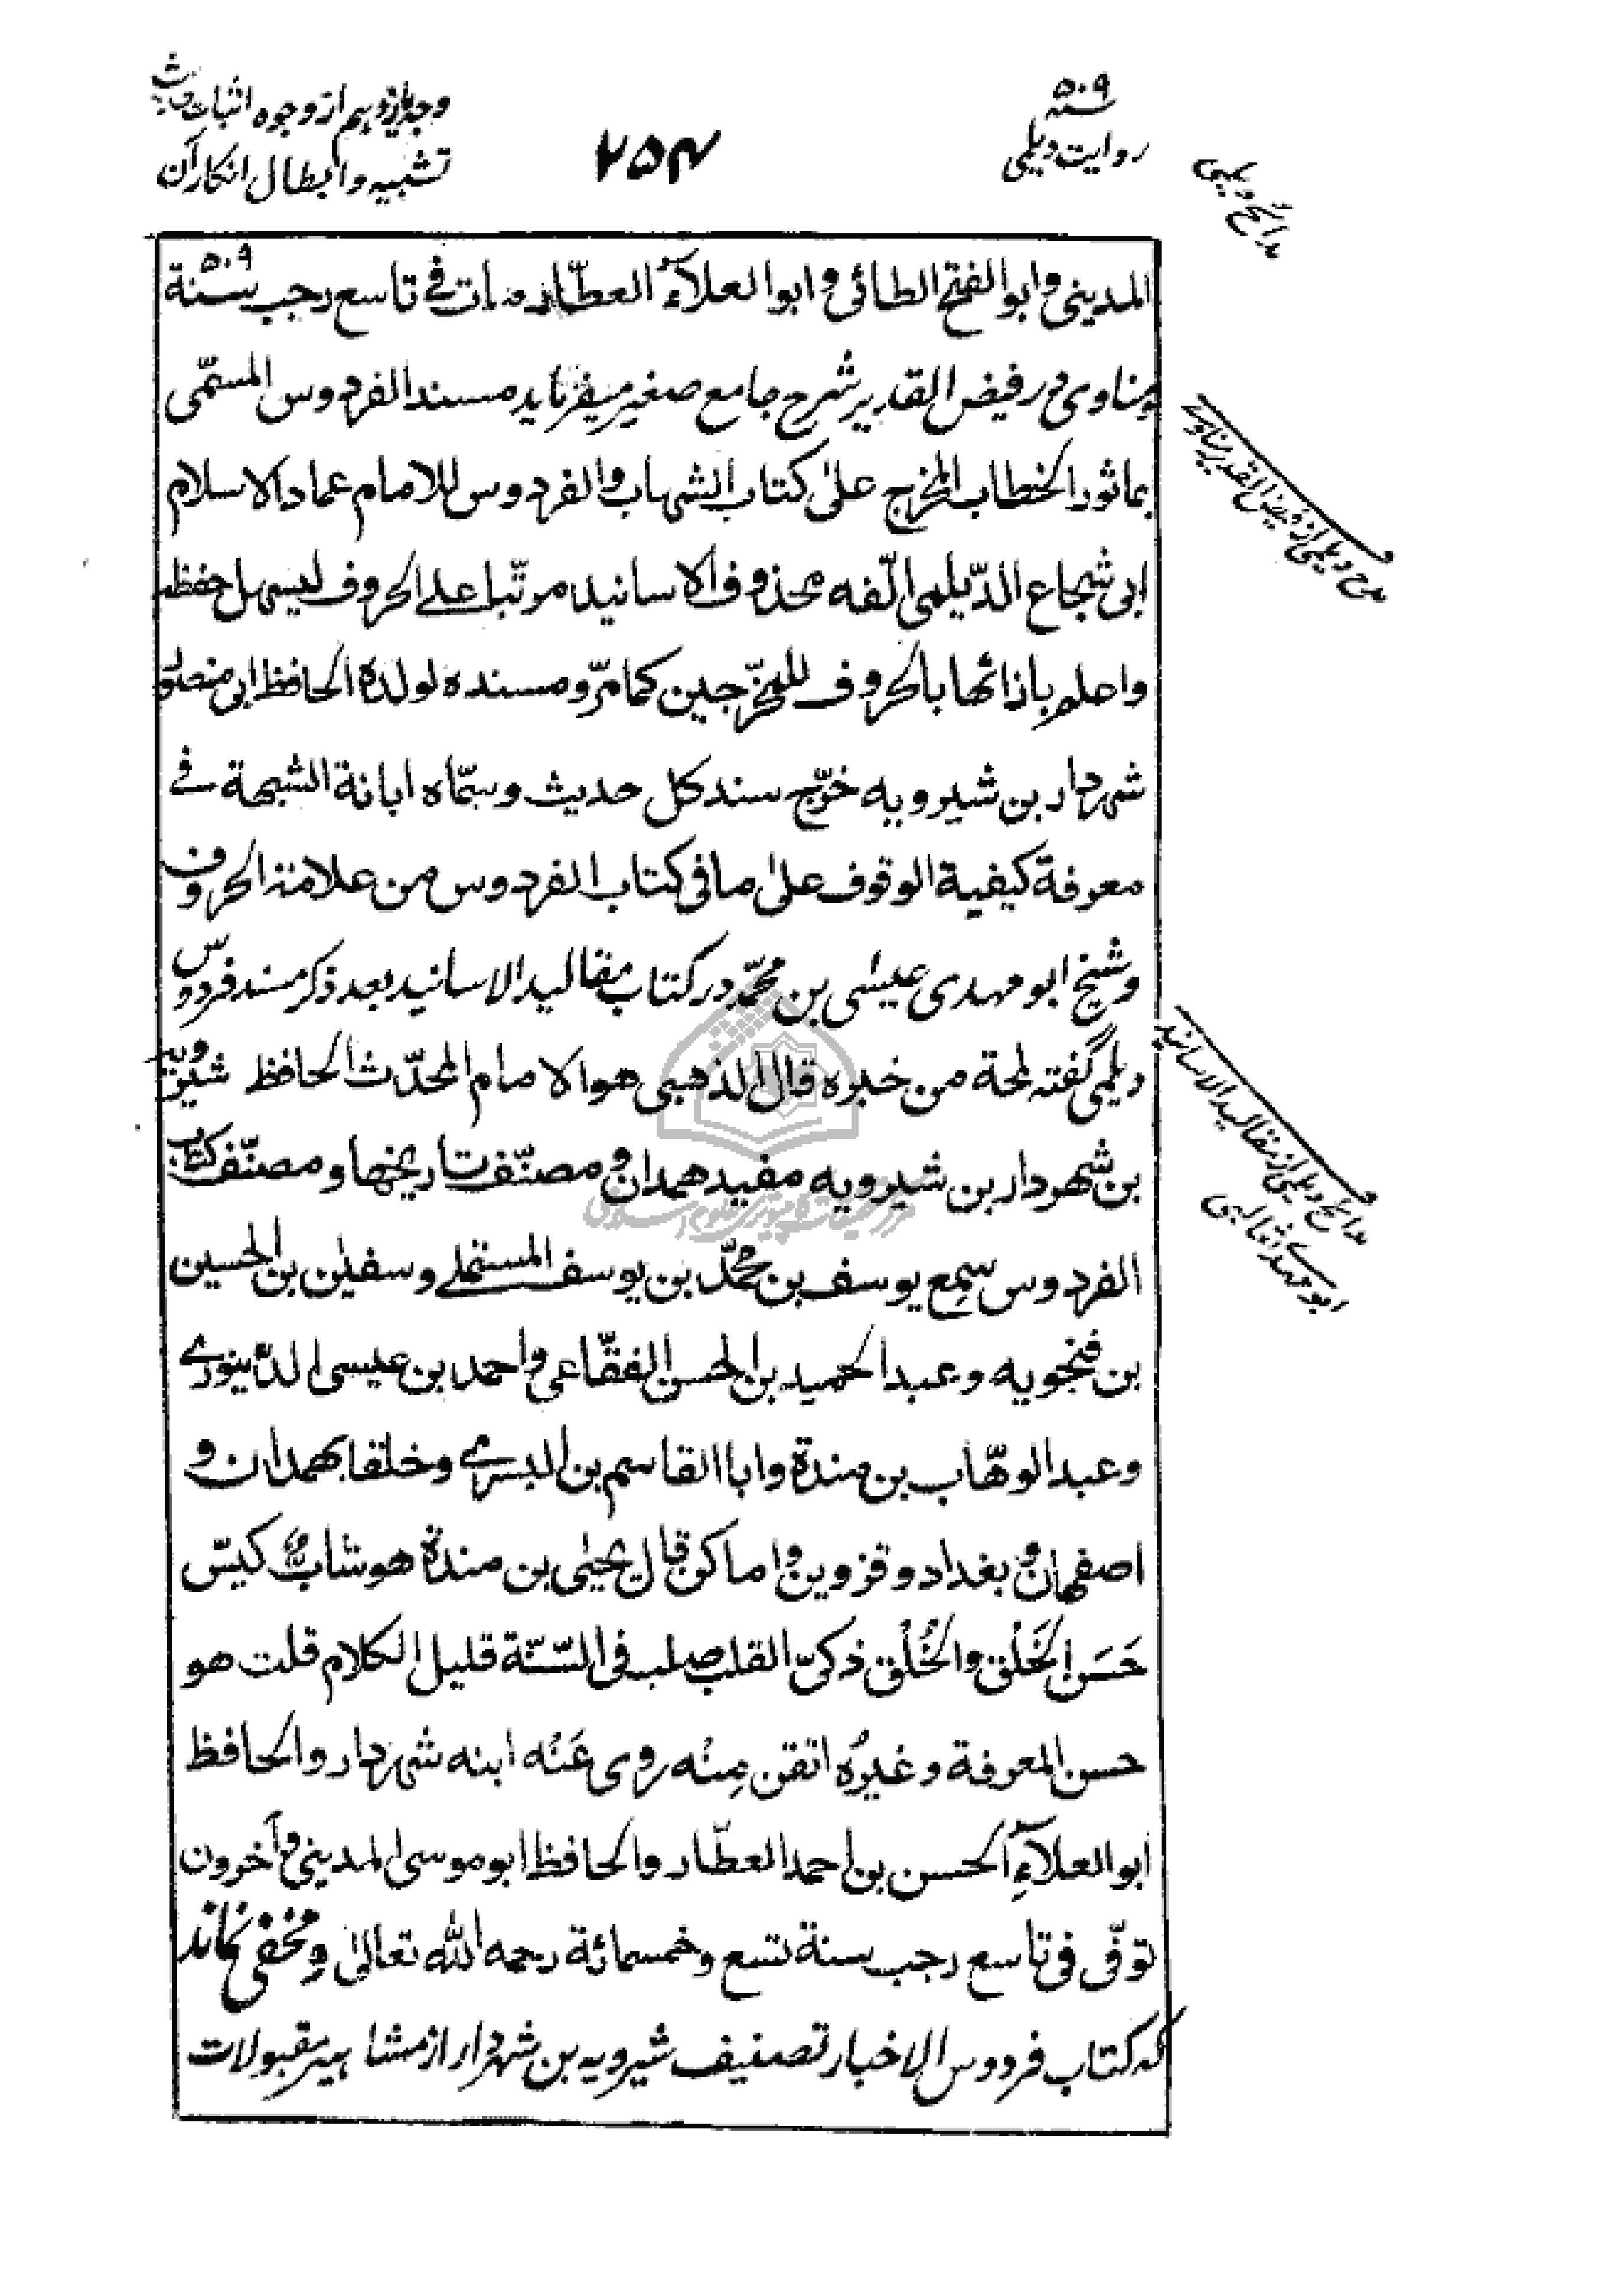 سنه ۵۰۹
روایت دیلمی
۲۵۴
وجه یازدهم از وجوه اثبات حدیث
تشبیه و ابطال انکار آن
مدائح دیلمی
المدینی و ابو الفتح الطائی و ابو العلآء العطّار مات فی تاسع رجب سنة ۵۰۹
و مناوی در فیض القدیر شرح جامع صغیر میفرماید مسند الفردوس المسمّی
بماثور الخطاب المخرج علی کتاب الشهاب و الفردوس للامام عماد الاسلام
ابی شجاع الدّیلمی الّفه محذوف الاسانید مرتّبا علی الحروف لیسهل حفظه
و اعلم بازائها بالحروف للمخرّجین کما مرّ و مسنده لولده الحافظ ابی منصور
شهردار بن شیرویه خرّج سند کل حدیث و سمّاه ابانة الشبهة فی
معرفة کیفیة الوقوف علی ما فی کتاب الفردوس من علامة الحروف
و شیخ ابو مهدی عیسی بن محمّد در کتاب مقالید الاسانید بعد ذکر مسند فردوس
دیلمی گفته لمحة من خبره قال الذهبی هو الامام المحدّث الحافظ شیرویه
بن شهردار بن شیرویه مفید همدان و مصنّف تاریخها و مصنّف کتاب
الفردوس سمع یوسف بن محمّد بن یوسف المستملی و سفین بن الحسین
بن فنجویه و عبد الحمید بن الحسن الفقّاعی و احمد بن عیسی الدّینوری
و عبد الوهّاب بن مندة و ابا القاسم بن البسری و خلقا بهمدان و
اصفهان و بغداد و قزوین و اماکن قال یحیی بن مندة هو شابّ کیّس
حَسَن الخَلْق و الخُلْق ذکیّ القلب صلب فی السّنّة قلیل الکلام قلت هو
حسن المعرفة و غیرُه اتقن مِنْه روی عَنْه ابنه شهردار و الحافظ
ابو العلآءِ الحسن بن احمد العطّار و الحافظ ابو موسی المدینی و آخرون
توفّی فی تاسع رجب سنة تسع و خمسمائة رحمه الله تعالی و مخفی نماند
که کتاب فردوس الاخبار تصنیف شیرویه بن شهردار از مشاهیر مقبولات
مدح دیلمی از فیض القدیر مناوی
مدائح دیلمی از مقالید الاسانید
ابو مهدی ثعالبی
مرکز تحقیقات کامپیوتری علوم اسلامی